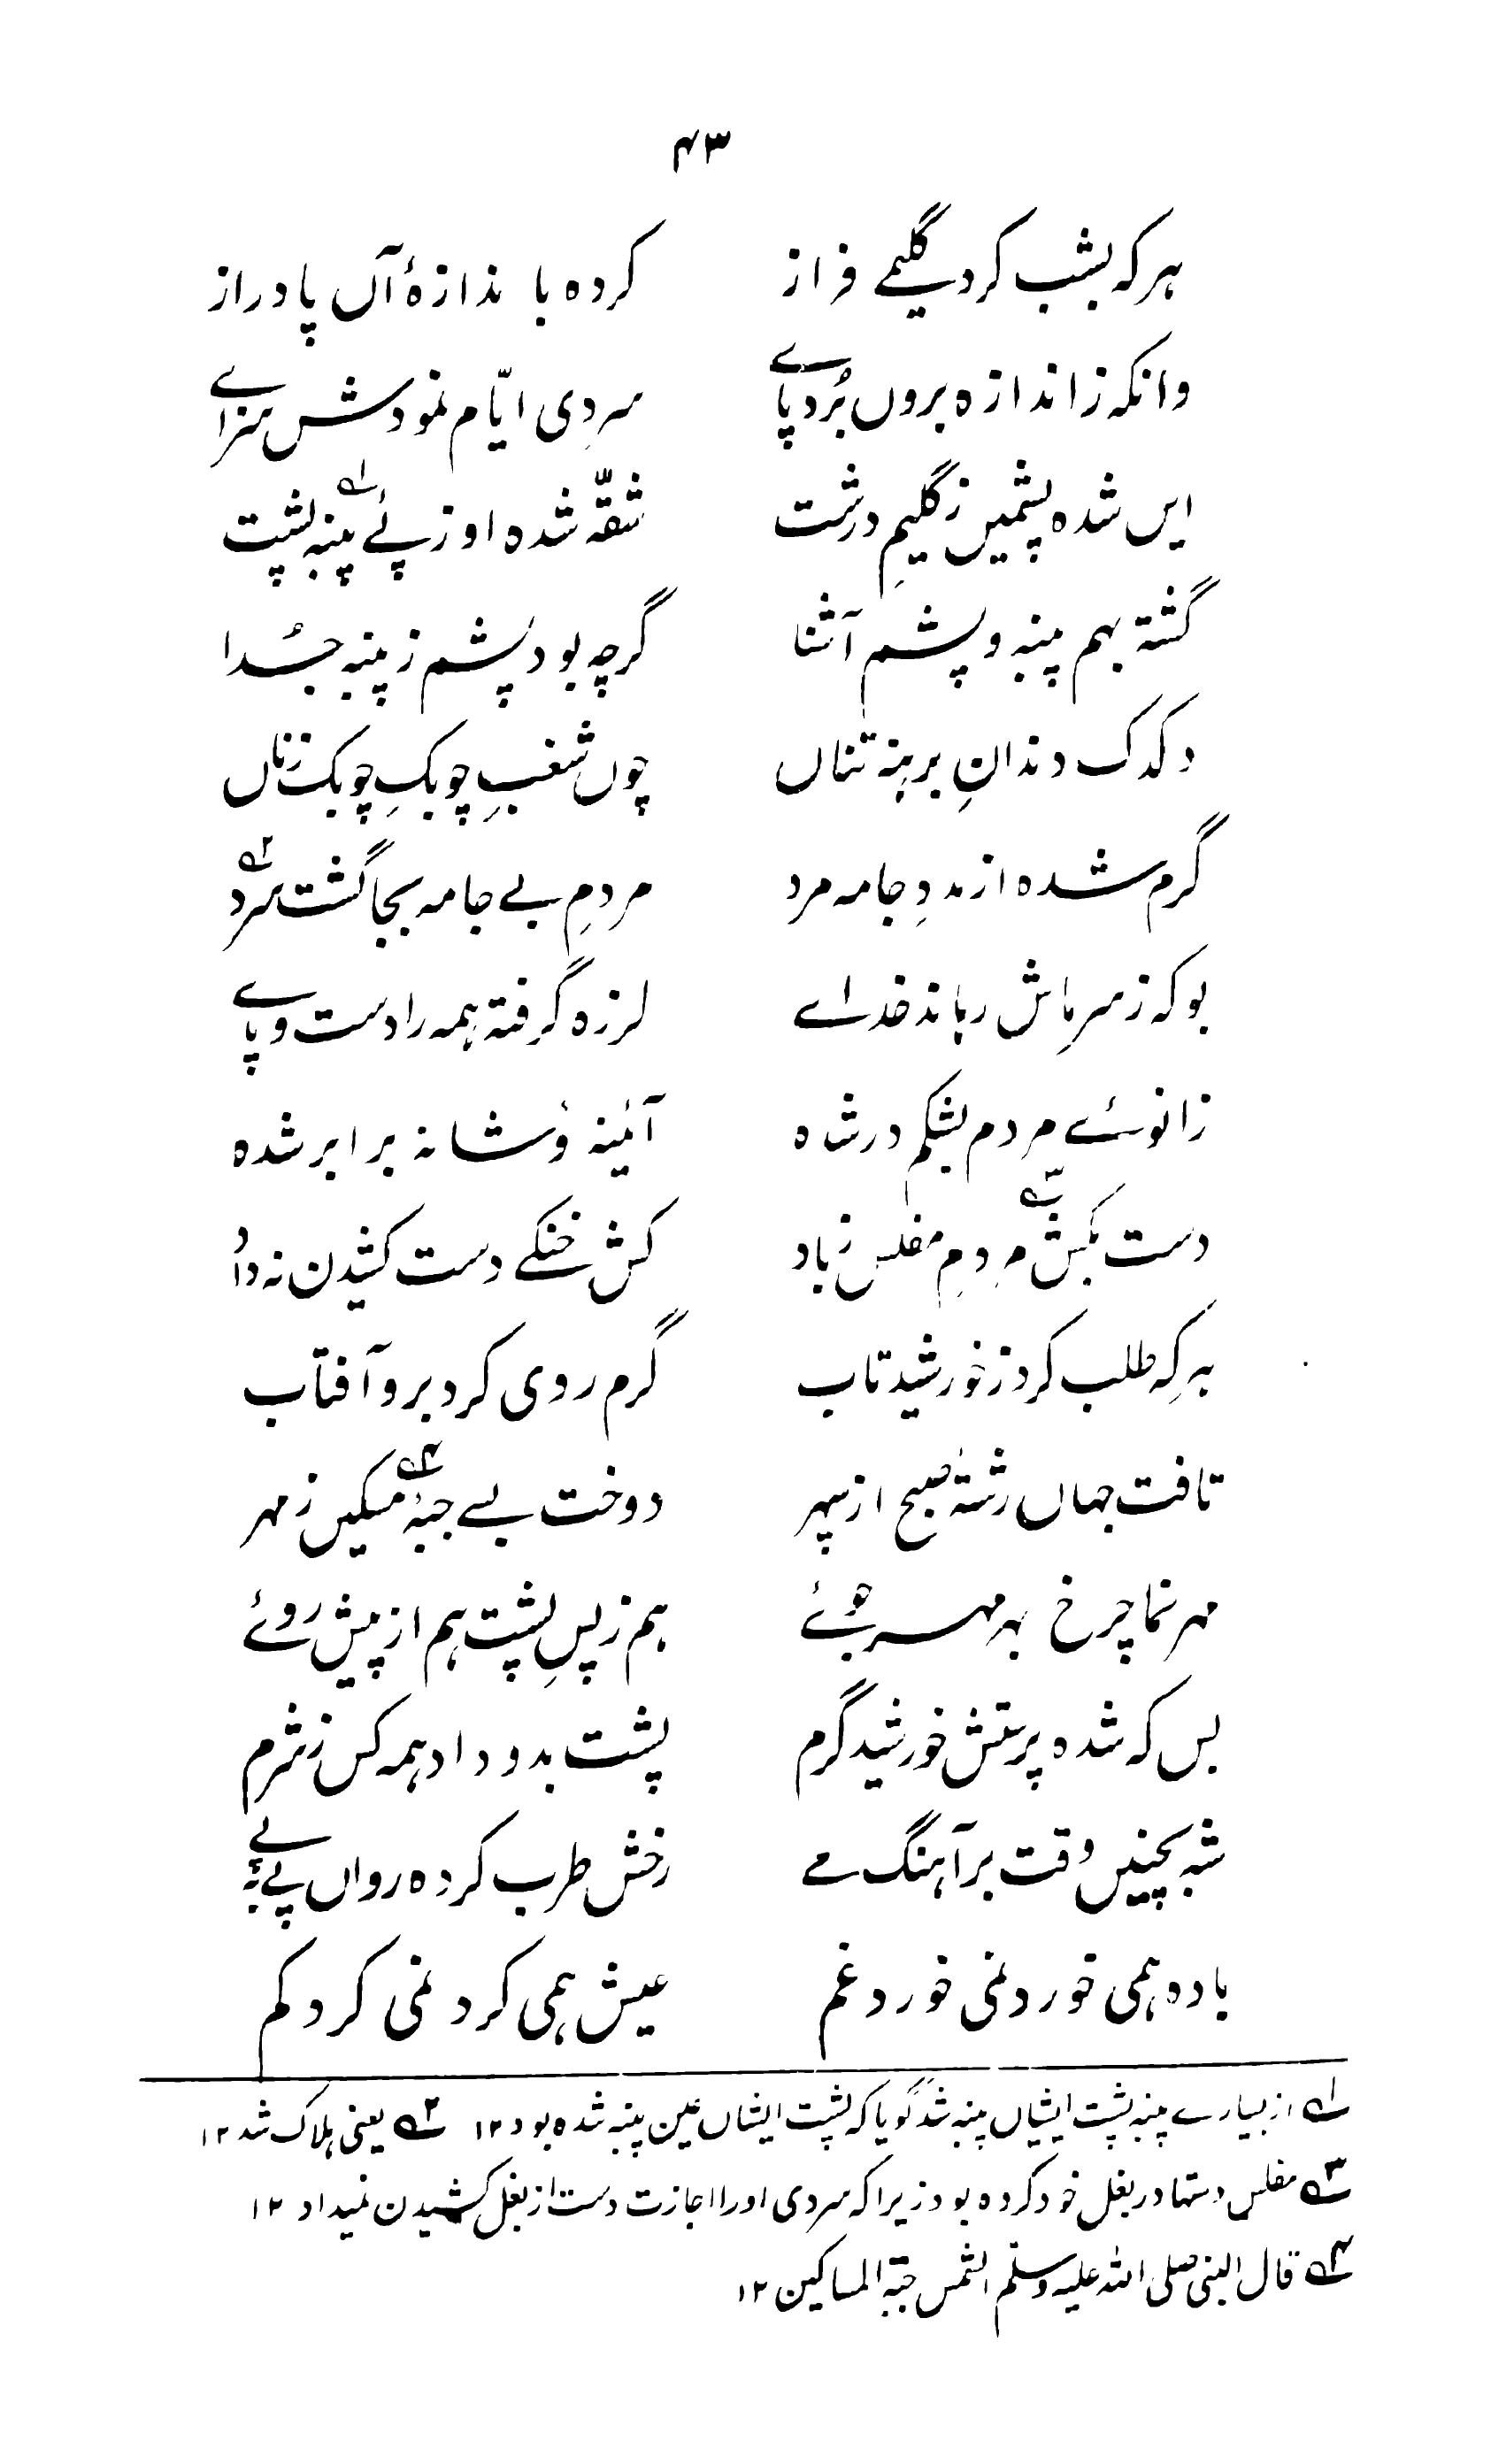 ۴۳
ہر کہ بشب کرد گلیمے فراز کردہ باندازۂ آں پا دراز
وانکہ ز اندازہ بروں بُرد پاے سردِی ایّام نمودش سزاے
ایں شدہ پشمیں ز گلیمِ درشت شقّہ شدہ او ز پئے پنبہ پشت ۱
گشتہ بہم پنبہ و پشم آشنا گرچہ بود پشم ز پنبہ جُدا
دکدک دندانِ برہنہ تناں چوں شغبِ چوبکِ چوبک زناں
گرم شدہ از مددِ جامہ مرد مردمِ بے جامہ بجا گشت سرد ۲
بو کہ ز سرماش رہاند خداے لرزہ گرفتہ ہمہ را دست و پاے
زانوئے مردم بشکم در شدہ آئینہ و شانہ برابر شدہ
دست بکش ۳ مردمِ مفلس ز باد کش خنکے دست کشیدن نہ داد
ہر کہ طلب کرد ز خورشید تاب گرم روی کرد برو آفتاب
تافت جہاں رشتۂ صبح از سپہر دوخت بسے جبّۂ ۴ مسکیں ز مہر
مہر نما چرخ بہر مہر جوئے ہم ز پسِ پشت ہم از پیش روئے
بس کہ شدہ پرستش خورشید گرم پشت بدو داد ہمہ کس ز شرم
شہ بچنیں وقت بر آہنگ مے رخش طرب کردہ رواں پے بہ پے
بادہ ہمی خورد نمی خورد غم عیش ہمی کرد نمی کرد کم
۱ از بسیارے پنبہ پشت ایشاں پنبہ شد گویا کہ پشت ایشاں عین پنبہ شدہ بود ۱۲ ۲ یعنی ہلاک شد ۱۲
۳ مفلس دستہا در بغل خود کردہ بود زیرا کہ سردی اورا اجازت دست از بغل کشیدن نمیداد ۱۲
۴ قال النبی صلی اللہ علیہ وسلم الشمس جبّۃ المساکین ۱۲